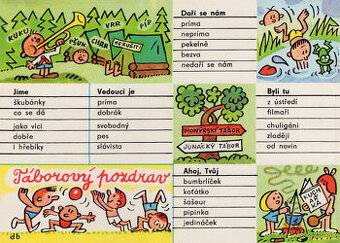 KUKU
VRR
PÍP
PŠUK
CHRR
NERUŠIT!
Daří se nám
príma
nepríma
pekelně
bezva
nedaří se nám
Jíme
škubánky
co se dá
jako vlci
dobře
i hřebíky
Vedoucí je
príma
dobrák
svobodný
pes
slávista
MONTÝRSKÝ TÁBOR
JUNÁCKÝ TÁBOR
Byli tu
z ústředí
filmaři
chuligáni
zloději
od novin
Táborový pozdrav
db
Ahoj, Tvůj
bumbrlíček
koťátko
šašour
pipinka
jedináček
KUCH
AŘ
KA